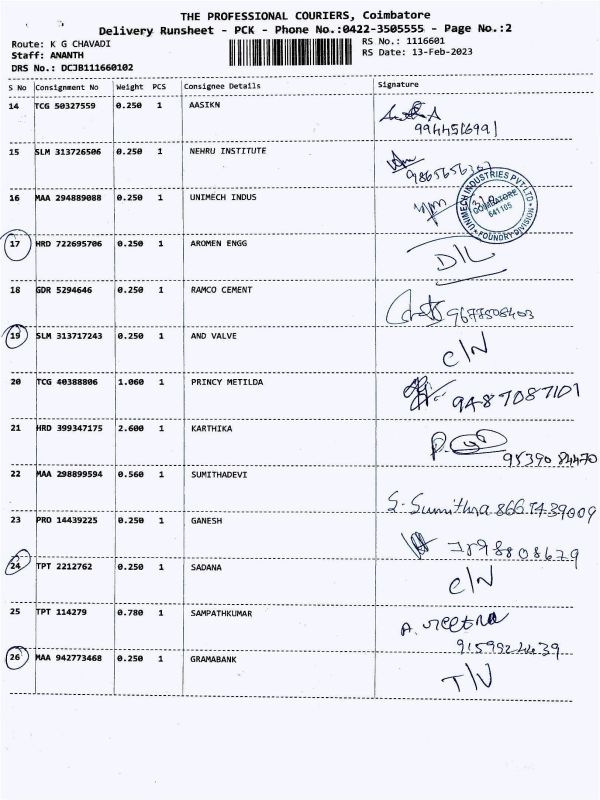 THE PROFESSIONAL COURIERS, Coimbatore
Delivery Runsheet - PCK - Phone No.:0422-3505555 - Page No.:2
Route: K G CHAVADI
RS No.: 1116601
Staff: ANANTH
RS Date: 13-Feb-2023
DRS No.: DCJB111660102
S No Consignment No Weight PCS Consignee Details Signature
14 TCG 50327559 0.250 1 AASIKN
9944516991
15 SLM 313726506 0.250 1 NEHRU INSTITUTE
16 MAA 294889088 0.250 1 UNIMECH INDUS
UNIMECH INDUSTRIES PVT LTD
COIMBATORE
641 105
FOUNDRY DIVISION
17 HRD 722695706 0.250 1 AROMEN ENGG
D/L
18 GDR 5294646 0.250 1 RAMCO CEMENT
9677508403
19 SLM 313717243 0.250 1 AND VALVE
C/N
20 TCG 40388806 1.060 1 PRINCY METILDA
9487087101
21 HRD 399347175 2.600 1 KARTHIKA
9539084470
22 MAA 298899594 0.560 1 SUMITHADEVI
S. Sumithra
23 PRO 14439225 0.250 1 GANESH
24 TPT 2212762 0.250 1 SADANA
C/N
25 TPT 114279 0.780 1 SAMPATHKUMAR
26 MAA 942773468 0.250 1 GRAMABANK
T/V